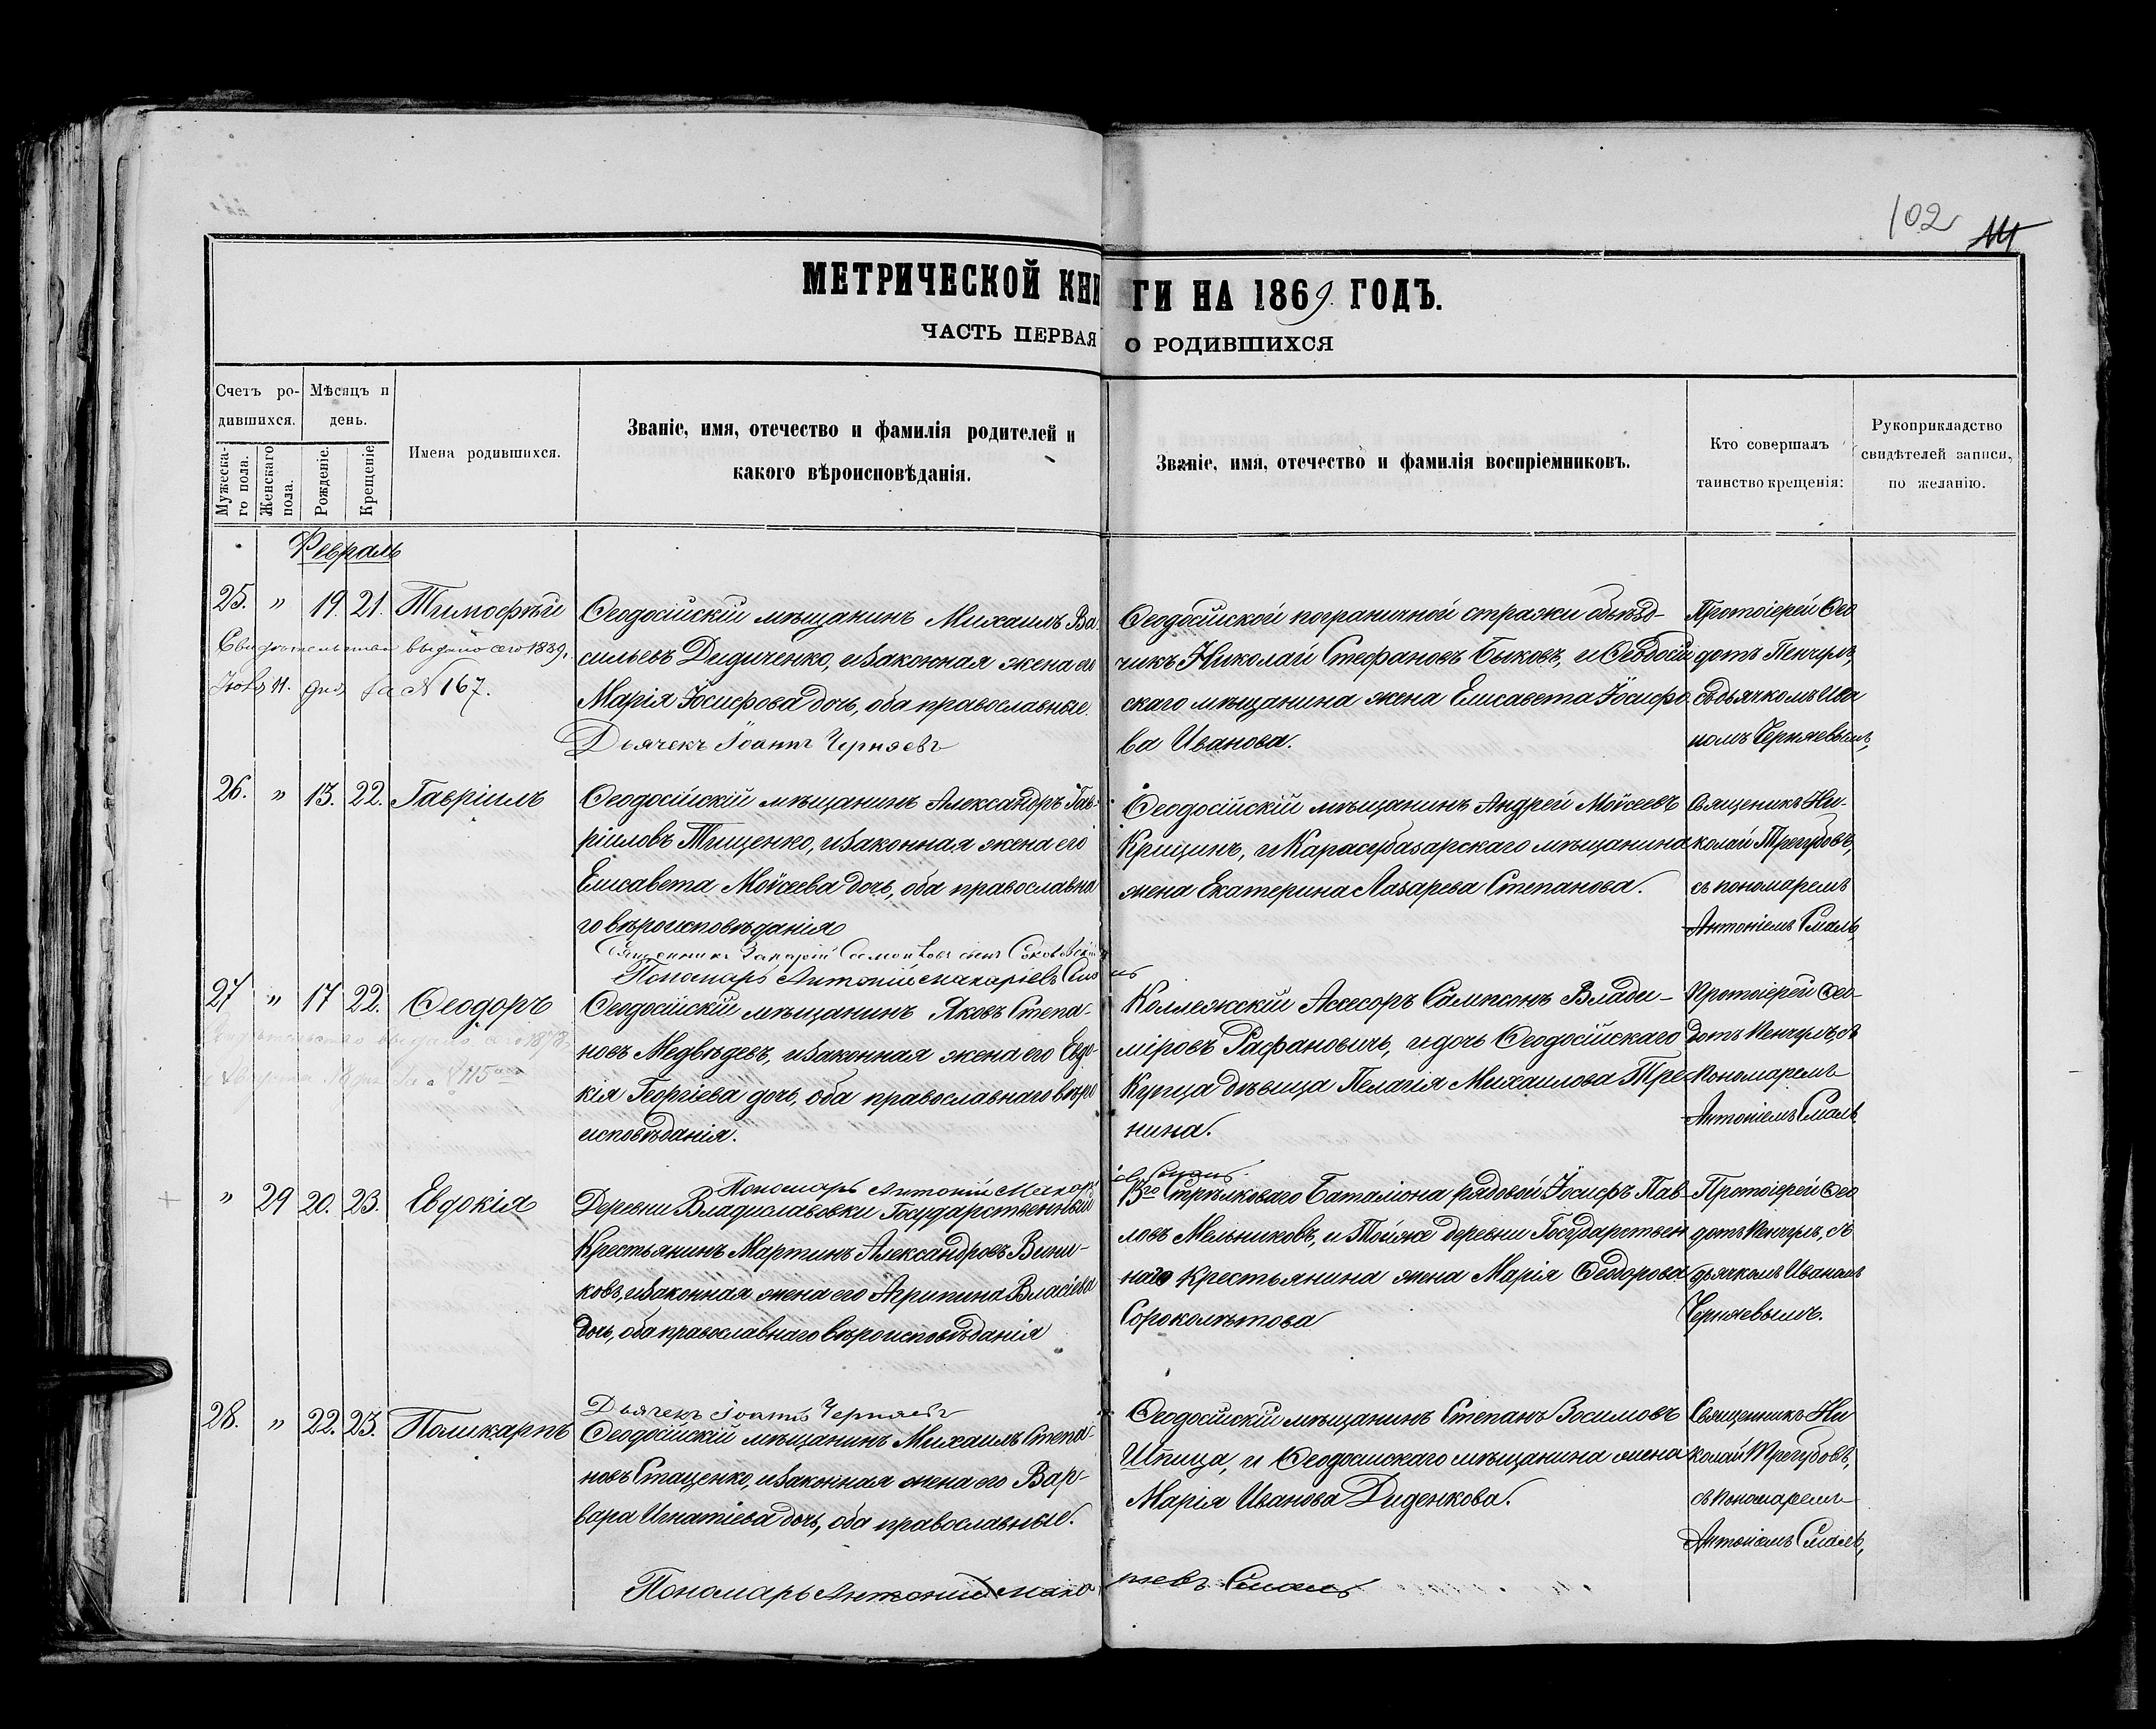 102
МЕТРИЧЕСКОЙ КНИГИ НА 1869. ГОДЪ.
ЧАСТЬ ПЕРВАЯ О РОДИВШИХСЯ
Счетъ ро-
дившихся.
Мужеска-
го пола.
Женскаго
пола.
Мѣсяцъ и
день.
Рожденіе.
Крещеніе
Имена родившихся.
Званіе, имя, отечество и фамилія родителей и
какого вѣроисповѣданія.
Званіе, имя, отечество и фамилія воспріемниковъ.
Кто совершалъ
таинство крещенія:
Рукоприкладство
свидѣтелей записи,
по желанію.
Февраль
25. " 19. 21. Тимофѣй
Свидѣтельство выдано сего 1889.
11. дня, за № 167.
Ѳеодосійскій мѣщанинъ Михаилъ Ва-
сильевъ Дидиченко, и законная жена его
Марія Іосифова дочь, оба православные.
Дьячекъ Іоаннъ Черняевъ
Ѳеодосійской пограничной стражи объѣзд-
чикъ Николай Стефановъ Быковъ, и Ѳеодосій
скаго мѣщанина жена Елисавета Іосифо
ва Иванова.
Протоіерей Ѳео
дотъ Пенчулъ,
съ дьячкомъ Ива
номъ Черняевымъ,
26. " 13. 22. Гавріилъ
Ѳеодосійскій мѣщанинъ Александръ Гав-
ріиловъ Тищенко, и законная жена его
Елисавета Моѵсеева дочь, оба православна
го вѣроисповѣданія
Пономарь Антоній Макаріевъ Смаль
Ѳеодосійскій мѣщанинъ Андрей Моѵсеевъ
Крицинъ, и Карасубазарскаго мѣщанина
жена Екатерина Лазарева Степанова.
Священикъ Ни-
колай Трегубовъ,
съ пономаремъ
Антоніемъ Смаль,
27 " 17 22. Ѳеодоръ
Свидѣтельство выдано сего 1878
Августа за № 115
Ѳеодосійскій мѣщанинъ Яковъ Степа-
новъ Медвѣдевъ, и законная жена его Евдо-
кія Георгіева дочь, оба православнаго вѣро
исповѣданія.
Пономарь Антоній Макарьевъ Смаль
Коллежскій Ассесоръ Сампсонъ Влади-
міровъ Рафановичъ, и дочь Ѳеодосійскаго
Купца дѣвица Пелагія Михаилова Тре
нина.
Протоіерей Ѳео-
дотъ Пенчулъ, съ
Пономаремъ
Антоніемъ Смаль
" 29 20. 23. Евдокія
Деревни Владиславовки Государственный
Крестьянинъ Мартинъ Александровъ Вини-
ковъ, и законная жена его Агрипина Власіева
дочь, оба православнаго вѣроисповѣданія
Дьячекъ Іоаннъ Черняевъ
13го Стрѣлковаго Баталіона рядовой Іосифъ Пав-
ловъ Мельниковъ, и Тойже деревни Государствен
наго Крестьянина жена Марія Ѳеодорова
Сороколѣтова
Протоіерей Ѳео
дотъ Пенчулъ, съ
дьячкомъ Иваномъ
Черняевымъ.
28. " 22. 23. Поликарпъ
Ѳеодосійскій мѣщанинъ Михаилъ Степа-
новъ Стаценко, и законная жена его Вар-
вара Игнатіева дочь, оба православные.
Пономарь Антоній Макарьевъ Смаль
Ѳеодосійскій мѣщанинъ Степанъ Зосимовъ
Шпица, и Ѳеодосійскаго мѣщанина жена
Марія Иванова Диденкова.
Священникъ Ни
колай Трегубовъ,
съ пономаремъ
Антоніемъ Смаль,